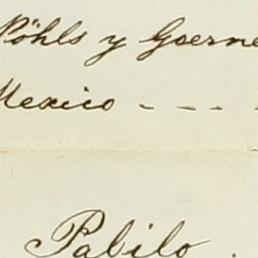 Pöhls y Goerne
Mexico - - - -
Pabilo.